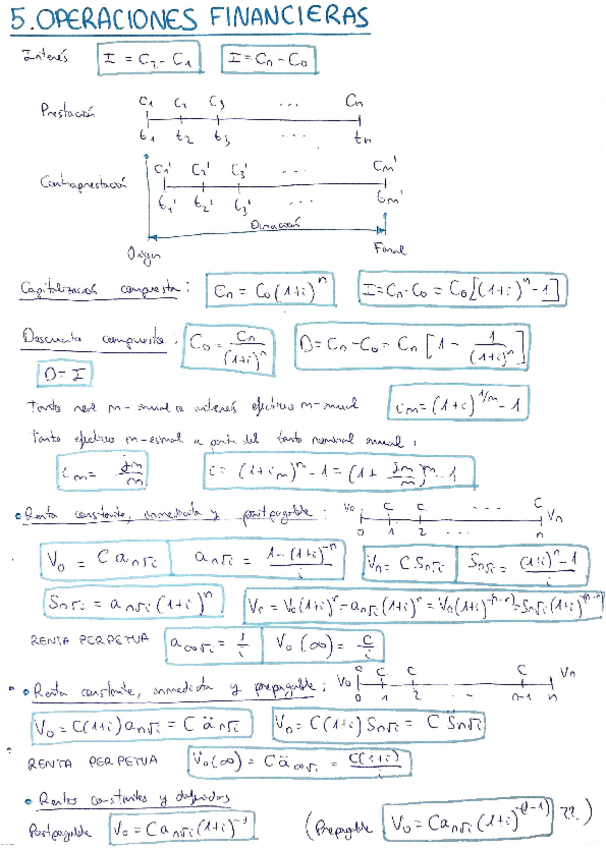 5. OPERACIONES FINANCIERAS
Interés I = C₂ - C₁ I = Cn - C₀
Prestación C₁ C₂ C₃ ... Cn
t₁ t₂ t₃ ... tn
Contraprestación C₁' C₂' C₃' ... Cm'
t₁' t₂' t₃' ... tm'
Duración
Origen Final
Capitalización compuesta: Cn = C₀(1+i)ⁿ I = Cn - C₀ = C₀[(1+i)ⁿ - 1]
Descuento compuesto: C₀ = Cn/(1+i)ⁿ D = Cn - C₀ = Cn[1 - 1/(1+i)ⁿ]
D = I
Tanto m-anual o interés efectivo m-anual im = (1+i)^(1/m) - 1
Tanto efectivo m-esimal a partir del tanto nominal anual:
im = jm/m i = (1+im)^m - 1 = (1 + jm/m)^m - 1
• Renta constante, inmediata y postpagable: V₀ C C ... C Vn
0 1 2 n
V₀ = C an⌉i an⌉i = 1-(1+i)⁻ⁿ/i Vn = C Sn⌉i Sn⌉i = (1+i)ⁿ - 1/i
Sn⌉i = an⌉i (1+i)ⁿ
RENTA PERPETUA a∞⌉i = 1/i V₀(∞) = C/i
• Renta constante, inmediata y prepagable: V₀ C C C C Vn
0 1 2 ... n-1 n
V₀ = C(1+i) an⌉i = C än⌉i V̈n = C(1+i) Sn⌉i = C S̈n⌉i
RENTA PERPETUA V̈₀(∞) = C ä∞⌉i = C(1+i)/i
• Rentas constantes y diferidas
Postpagable V₀ = C an⌉i (1+i)
(Prepagable V₀ = C an⌉i (1+i) ??)